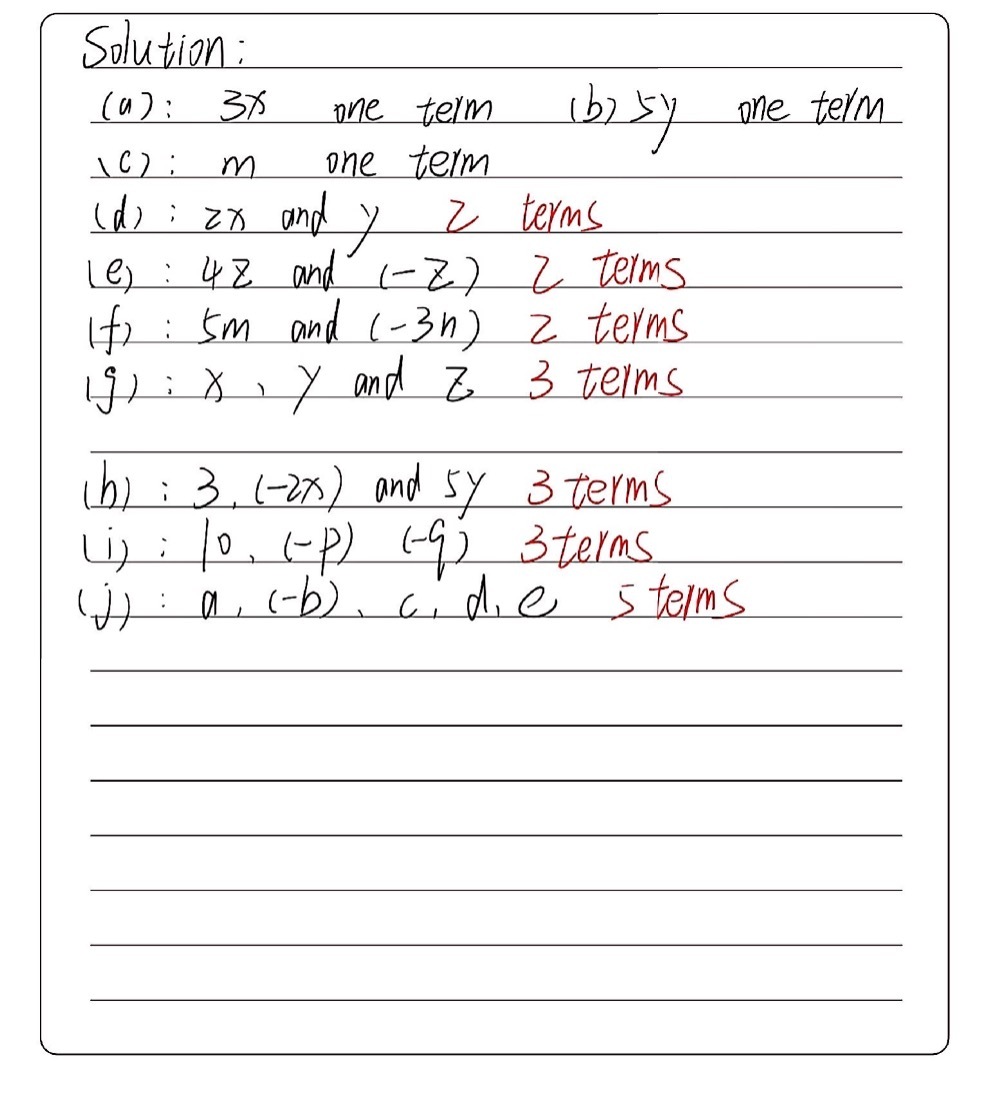 Solution:
(a): 3x one term (b) 5y one term
(c): m one term
(d): 2x and y 2 terms
(e): 4z and (-z) 2 terms
(f): 5m and (-3n) 2 terms
(g): x、y and z 3 terms
(h): 3、(-2x) and 5y 3 terms
(i): 10、(-p) (-q) 3 terms
(j): a、(-b)、c、d、e 5 terms